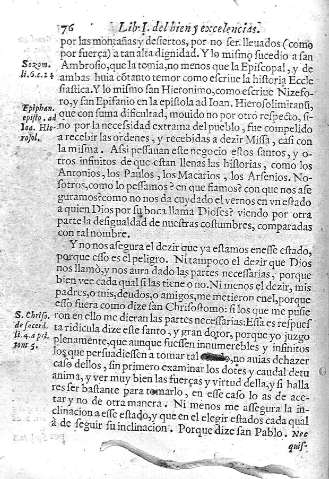 76 Lib. I. del bien y excelencias.
por las montañas y desiertos, por no ser lleuados (como
por fuerça) a tan alta dignidad. Y lo mismo sucedio a san
Ambrosio, que la tomia, no menos que la Episcopal, y de
ambas huia cõ tanto temor como escriue la historia Eccle
siastica. Y lo mismo san Hieronimo, como escriue Nizefo-
ro, y san Epifanio en la epistola ad Ioan. Hierosolimitanũ,
que con suma dificultad, mouido no por otro respecto, si-
no por la necessidad extrema del pueblo, fue compelido
a recebir las ordenes, y recebidas a dezir Missa, casi con
la misma. Assi pesauan este negocio estos santos, y o-
tros infinitos de que estan llenas las historias, como los
Antonios, los Paulos, los Macarios, los Arsenios. No-
sotros, como lo pesamos? en que fiamos? con que nos ase
guramos? como no nos da cuydado el vernos en vn estado
a quien Dios por su boca llama Dioses? viendo por otra
parte la desigualdad de nuestras costumbres, comparadas
con tal nombre.
Y no nos asegura el dezir que ya estamos en esse estado,
porque esso es el peligro. Ni tampoco el dezir que Dios
nos llamò, y nos aura dado las partes necessarias, porque
bien vee cada qual si las tiene o no. Ni menos el dezir, mis
padres, o mis, deudos, o amigos, me metieron en el, porque
esso fuera como dize san Chrisostomo: si los que me pusie
ron en ello me dieran las partes necessarias: Esta es respues
ta ridicula dize este santo, y gran dotor, porque yo juzgo
plenamente, que aunque fuessen innumerables y infinitos
los que persuadiessen a tomar tal , no auias de hazer
caso dellos, sin primero examinar los dotes y caudal de tu
anima, y ver muy bien las fuerças y virtud della, y si halla
res ser bastante para tomarlo, en esse caso lo as de ace-
tar y no de otra manera. Ni menos me assegura la in-
clinacion a esse estado, y que en el elegir estados cada qual
à de seguir su inclinacion. Porque dize san Pablo. Nec
quis-
Sozom.
li. 6. c. 24
Epiphan.
episto. ad
Ioa. Hie-
rosol.
S. Chriso.
de sacerd.
li. 4. a pri.